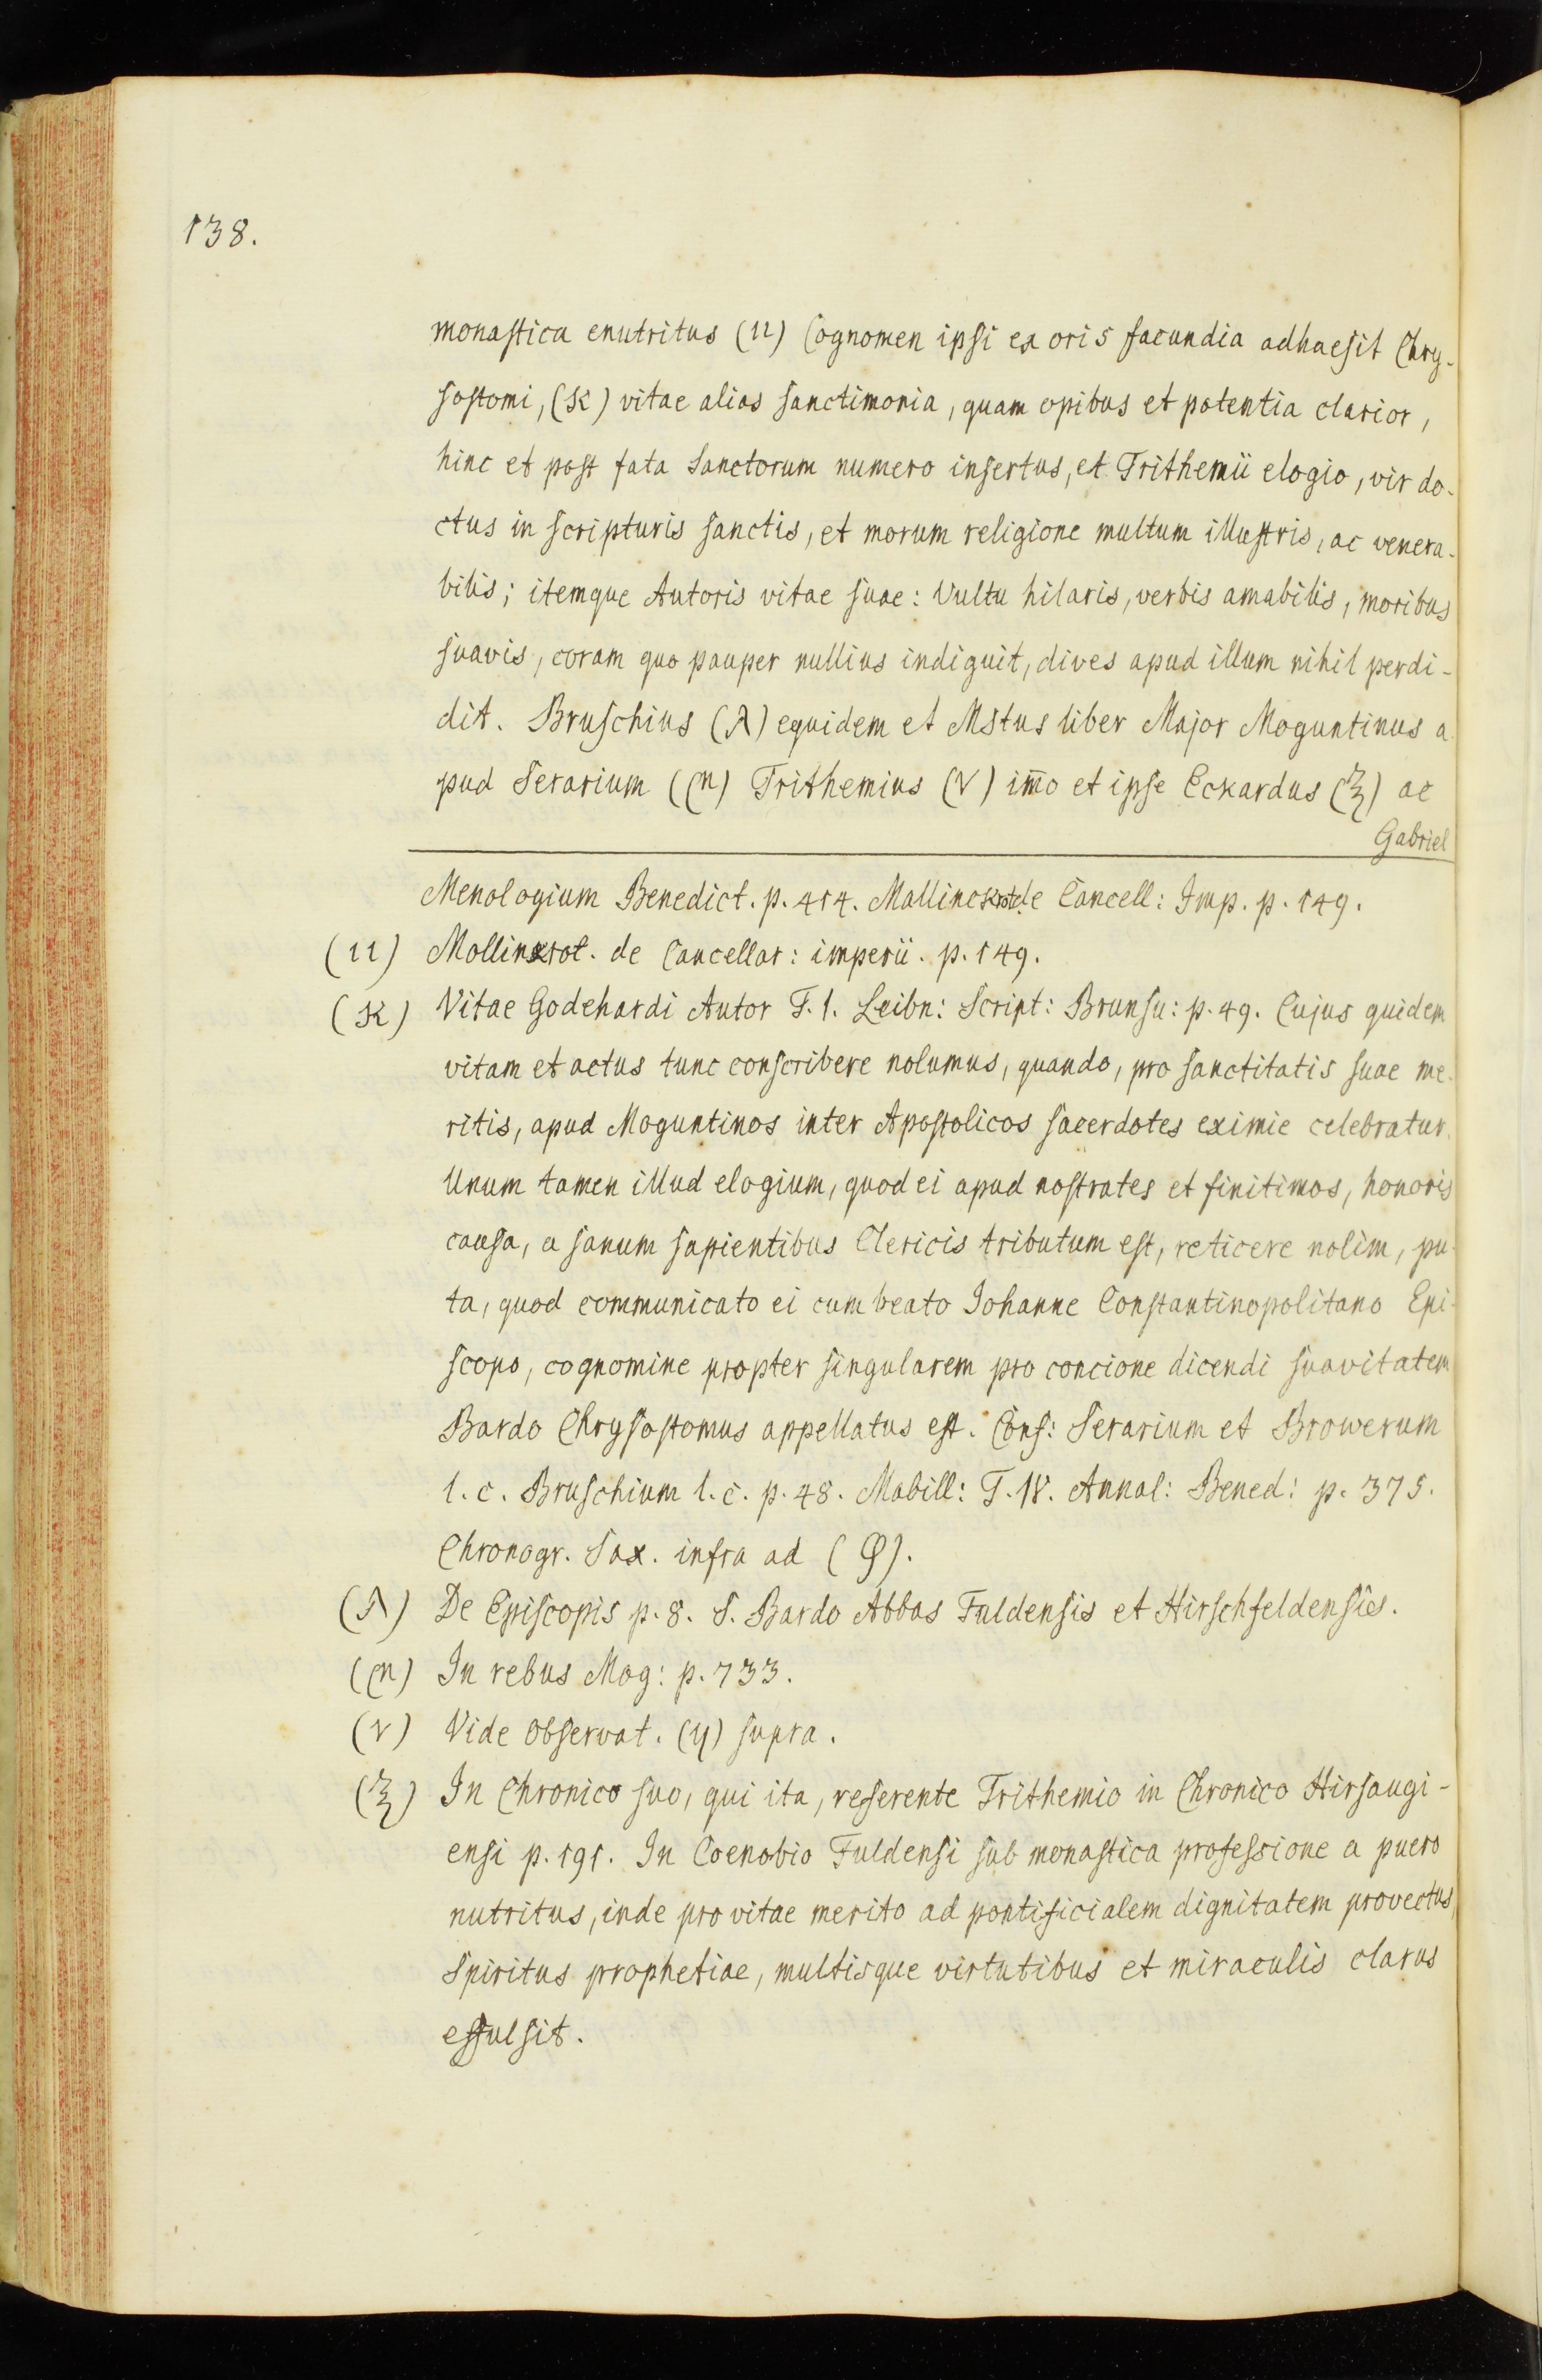 138.
monastica enutritus (ιι) Cognomen ipsi ex oris facundia adhaesit Chry-
sostomi, (κ) vitae alias sanctimonia, quam opibus et potentia clarior,
hinc et post fata Sanctorum numero insertus, et Trithemii elogio, vir do-
ctus in scripturis sanctis, et morum religione multum illustris, ac venera-
bilis; itemque Autoris vitae suae: Vultu hilaris, verbis amabilis, moribus
suavis, coram quo pauper nullius indiguit, dives apud illum nihil perdi-
dit. Bruschius (λ) equidem et Mstus liber Major Moguntinus a
pud Serarium (m) Trithemius (ν) im̅o et ipse Eckardus (ξ) ac
Gabriel
Menologium Benedict. p. 414. Mallinckrot de Cancell: Imp. p. 149.
(ιι) Mollinkrot. de Cancellar: imperii. p. 149.
(κ) Vitae Godehardi Autor T. 1. Leibn: Script: Brunsu: p. 49. Cujus quidem
vitam et actus tunc conscribere nolumus, quando, pro sanctitatis suae me-
ritis, apud Moguntinos inter Apostolicos sacerdotes eximie celebratur.
Unum tamen illud elogium, quod ei apud nostrates et finitimos, honoris
causa, a sanum sapientibus Clericis tributum est, reticere nolim, pu-
ta, quod communicato ei cum beato Johanne Constantinopolitano Epi-
scopo, cognomine propter singularem pro concione dicendi suavitatem
Bardo Chrysostomus appellatus est. Cons: Serarium et Browerum
l. c. Bruschium l. c. p. 48. Mabill: T. IV. Annal: Bened: p. 375.
Chronogr. Sax. infra ad (φ).
(λ) De Episcopis p. 8. S. Bardo Abbas Fuldensis et Hirschfeldensis.
(m) In rebus Mog: p. 733.
(ν) Vide Observat. (y) supra.
(ξ) In Chronico suo, qui ita, referente Trithemio in Chronico Hirsaugi-
ensi p. 191. In Coenobio Fuldensi sub monastica professione a puero
nutritus, inde pro vitae merito ad pontificialem dignitatem provectus,
Spiritus prophetiae, multisque virtutibus et miraculis clarus
effulsit.